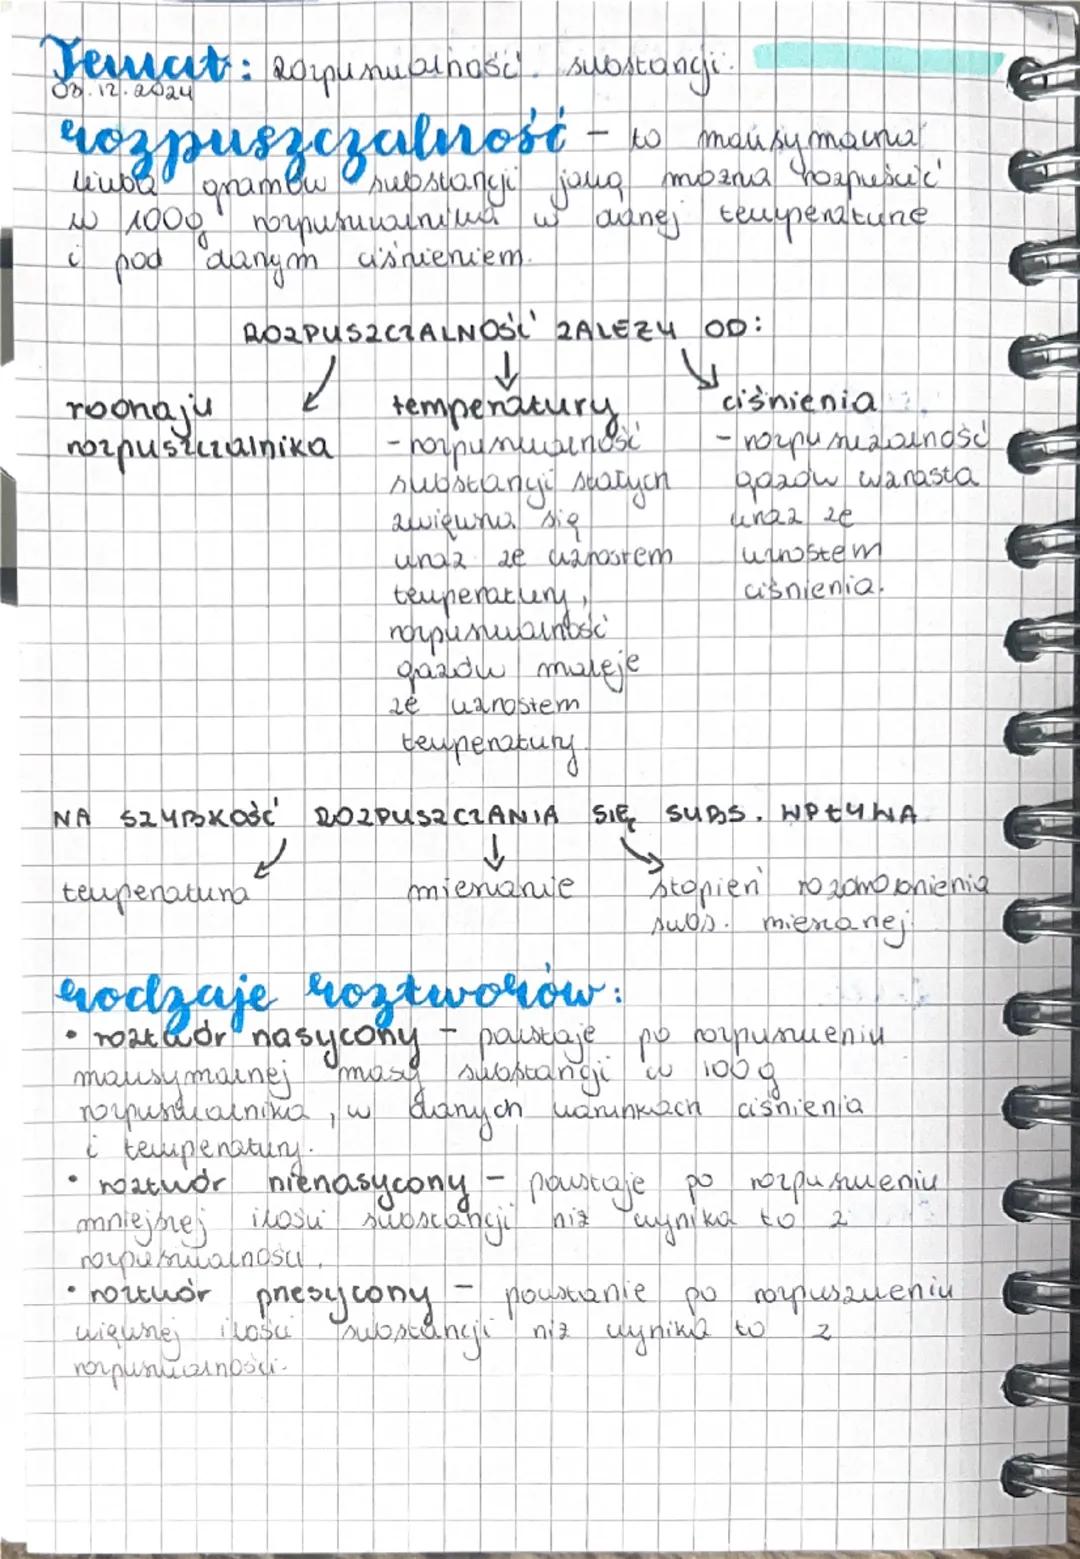 Temat: Rozpuszczalność substancji.
03.12.2024
rozpuszczalność - to maksymalna
liczba gramów substancji jaką można rozpuścić
w 100g rozpuszczalnika w danej temperaturze
i pod danym ciśnieniem.
ROZPUSZCZALNOŚĆ ZALEŻY OD:
rodzaju
rozpuszczalnika
temperatury
- rozpuszczalność
substancji stałych
zwiększa się
wraz ze wzrostem
temperatury,
rozpuszczalność
gazów maleje
ze wzrostem
temperatury.
ciśnienia
- rozpuszczalność
gazów wzrasta
wraz ze
wzrostem
ciśnienia.
NA SZYBKOŚĆ ROZPUSZCZANIA SIĘ SUBS. WPŁYWA
temperatura
mieszanie
stopień rozdrobnienia
subs. mieszanej.
rodzaje roztworów:
• roztwór nasycony - powstaje po rozpuszczeniu
maksymalnej masy substancji w 100g
rozpuszczalnika, w danych warunkach ciśnienia
i temperatury.
• roztwór nienasycony - powstaje po rozpuszczeniu
mniejszej ilości substancji niż wynika to z
rozpuszczalności.
• roztwór przesycony - powstanie po rozpuszczeniu
większej ilości substancji niż wynika to z
rozpuszczalności.